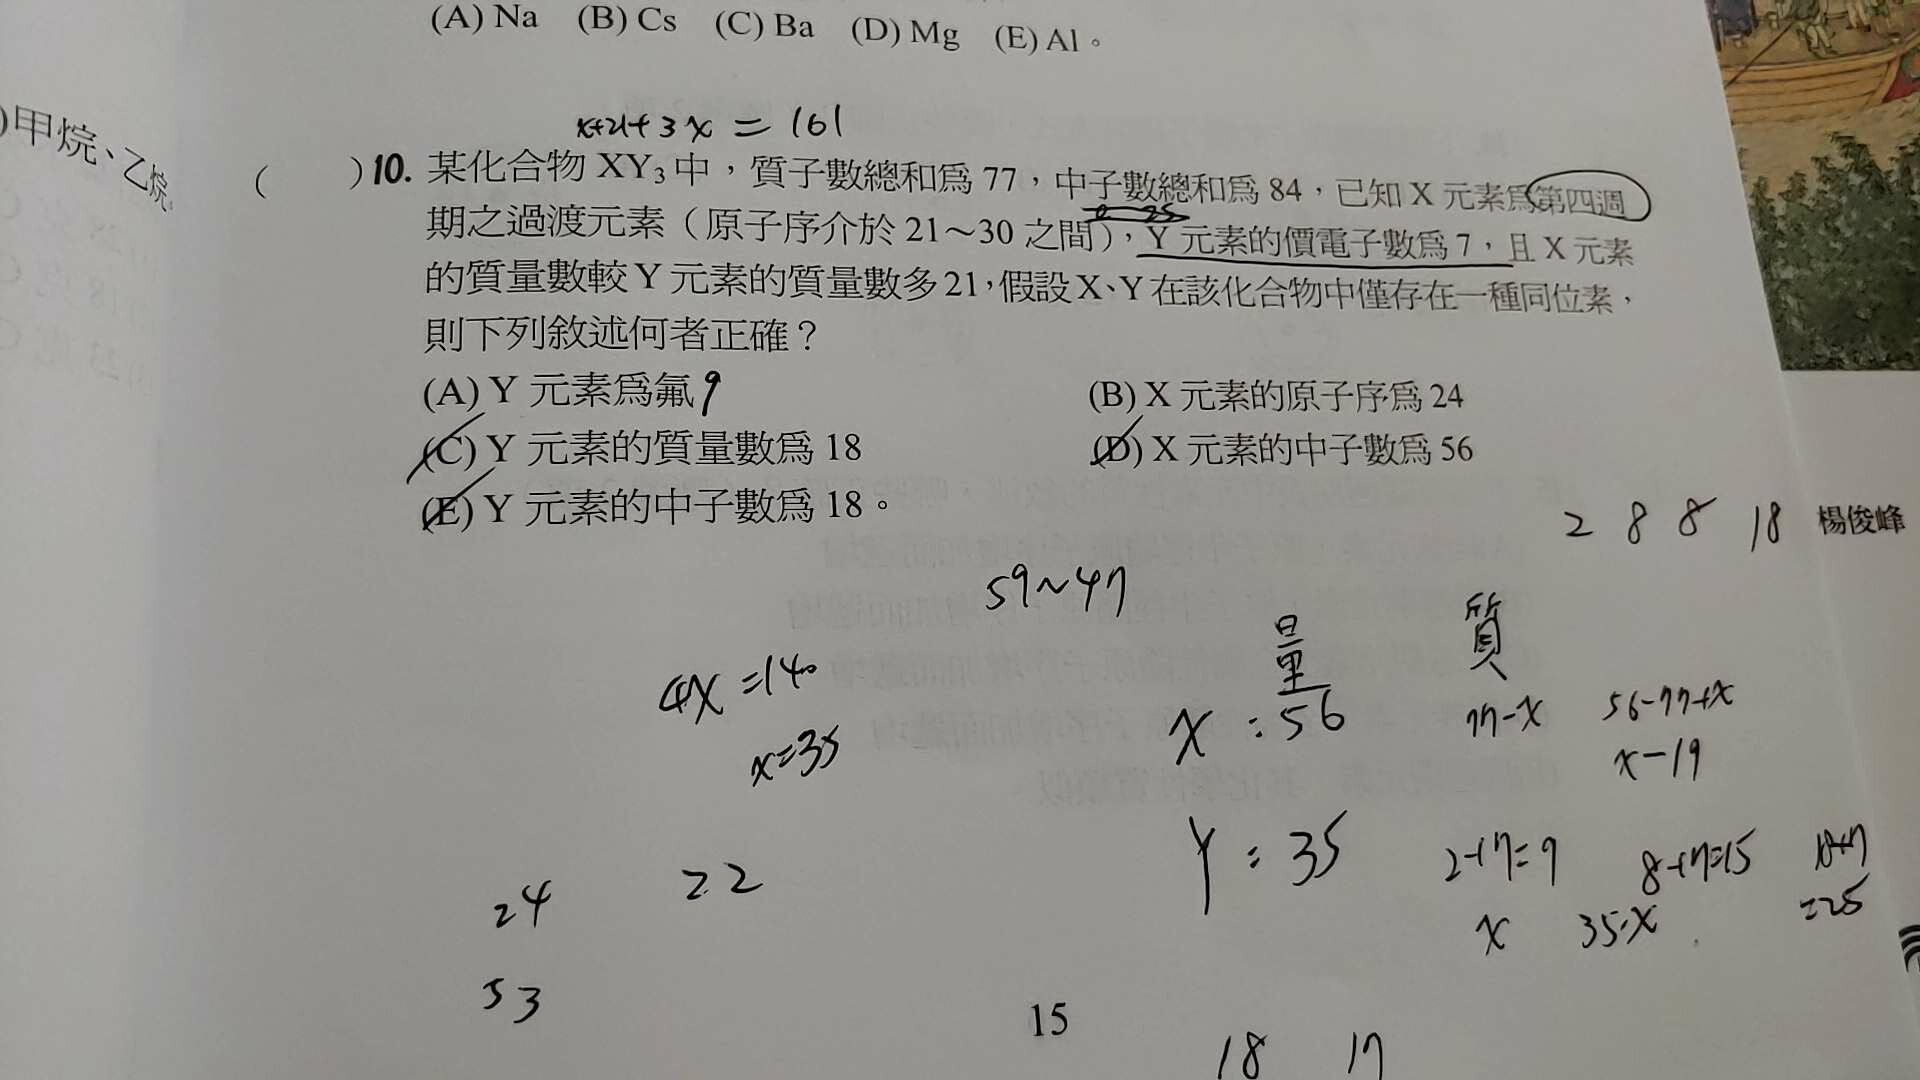 (A) Na (B) Cs (C) Ba (D) Mg (E) Al。
)甲烷、乙烷
x+21+3x=161
( )10. 某化合物 XY₃ 中，質子數總和為 77，中子數總和為 84，已知 X 元素為第四週
期之過渡元素（原子序介於 21～30 之間），Y 元素的價電子數為 7，且 X 元素
的質量數較 Y 元素的質量數多 21，假設 X、Y 在該化合物中僅存在一種同位素，
則下列敘述何者正確？
(A) Y 元素為氟 9
(B) X 元素的原子序為 24
(C) Y 元素的質量數為 18
(D) X 元素的中子數為 56
(E) Y 元素的中子數為 18。
2 8 8 18
楊俊峰
59~47
量 質
4x=140
x=35
X:56 77-x 56-77+x
x-19
Y:35 2+7=9 8+7=15 18+7
=25
x 35-x
24 22
53
15
18 17